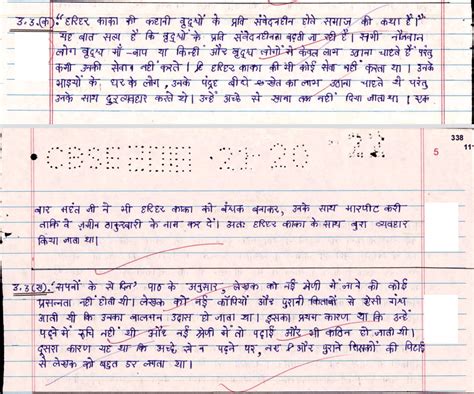 उ.3.(क) "हरिहर काका की कहानी वृद्धों के प्रति संवेदनहीन होते समाज की कथा है।"
यह बात सत्य है कि वृद्धों के प्रति संवेदनहीनता बढ़ती जा रही है। सभी नौजवान
लोग वृद्ध माँ-बाप या किन्हीं और वृद्ध लोगों से केवल लाभ उठाना चाहते हैं परंतु
कभी उनकी सेवा नहीं करते। हरिहर काका की भी कोई सेवा नहीं करता था। उनके
भाइयों के घर के लोग, उनके पंद्रह बीघे खेत का लाभ उठाना चाहते थे परंतु
उनके साथ दुरव्यवहार करते थे। उन्हें अच्छे से खाना तक नहीं दिया जाता था। एक
CBSE 21-20
338
11
5
बार महंत जी ने भी हरिहर काका को बंधक बनाकर, उनके साथ मारपीट करी
ताकि वे ज़मीन ठाकुरबारी के नाम कर दें। अतः हरिहर काका के साथ बुरा व्यवहार
किया जाता था।
उ.3(ख). 'सपनों के से दिन' पाठ के अनुसार, लेखक को नई श्रेणी में जाने की कोई
प्रसन्नता नहीं होती थी। लेखक को नई कॉपियों और पुरानी किताबों से ऐसी गंध
आती थी कि उनका बालमन उदास हो जाता था। इसका प्रथम कारण था कि उन्हें
पढ़ने में रुचि नहीं थी और नई श्रेणी में तो पढ़ाई और भी कठिन हो जाती थी।
दूसरा कारण यह था कि अच्छे से न पढ़ने पर, नए और पुराने शिक्षकों की पिटाई
से लेखक को बहुत डर लगता था।